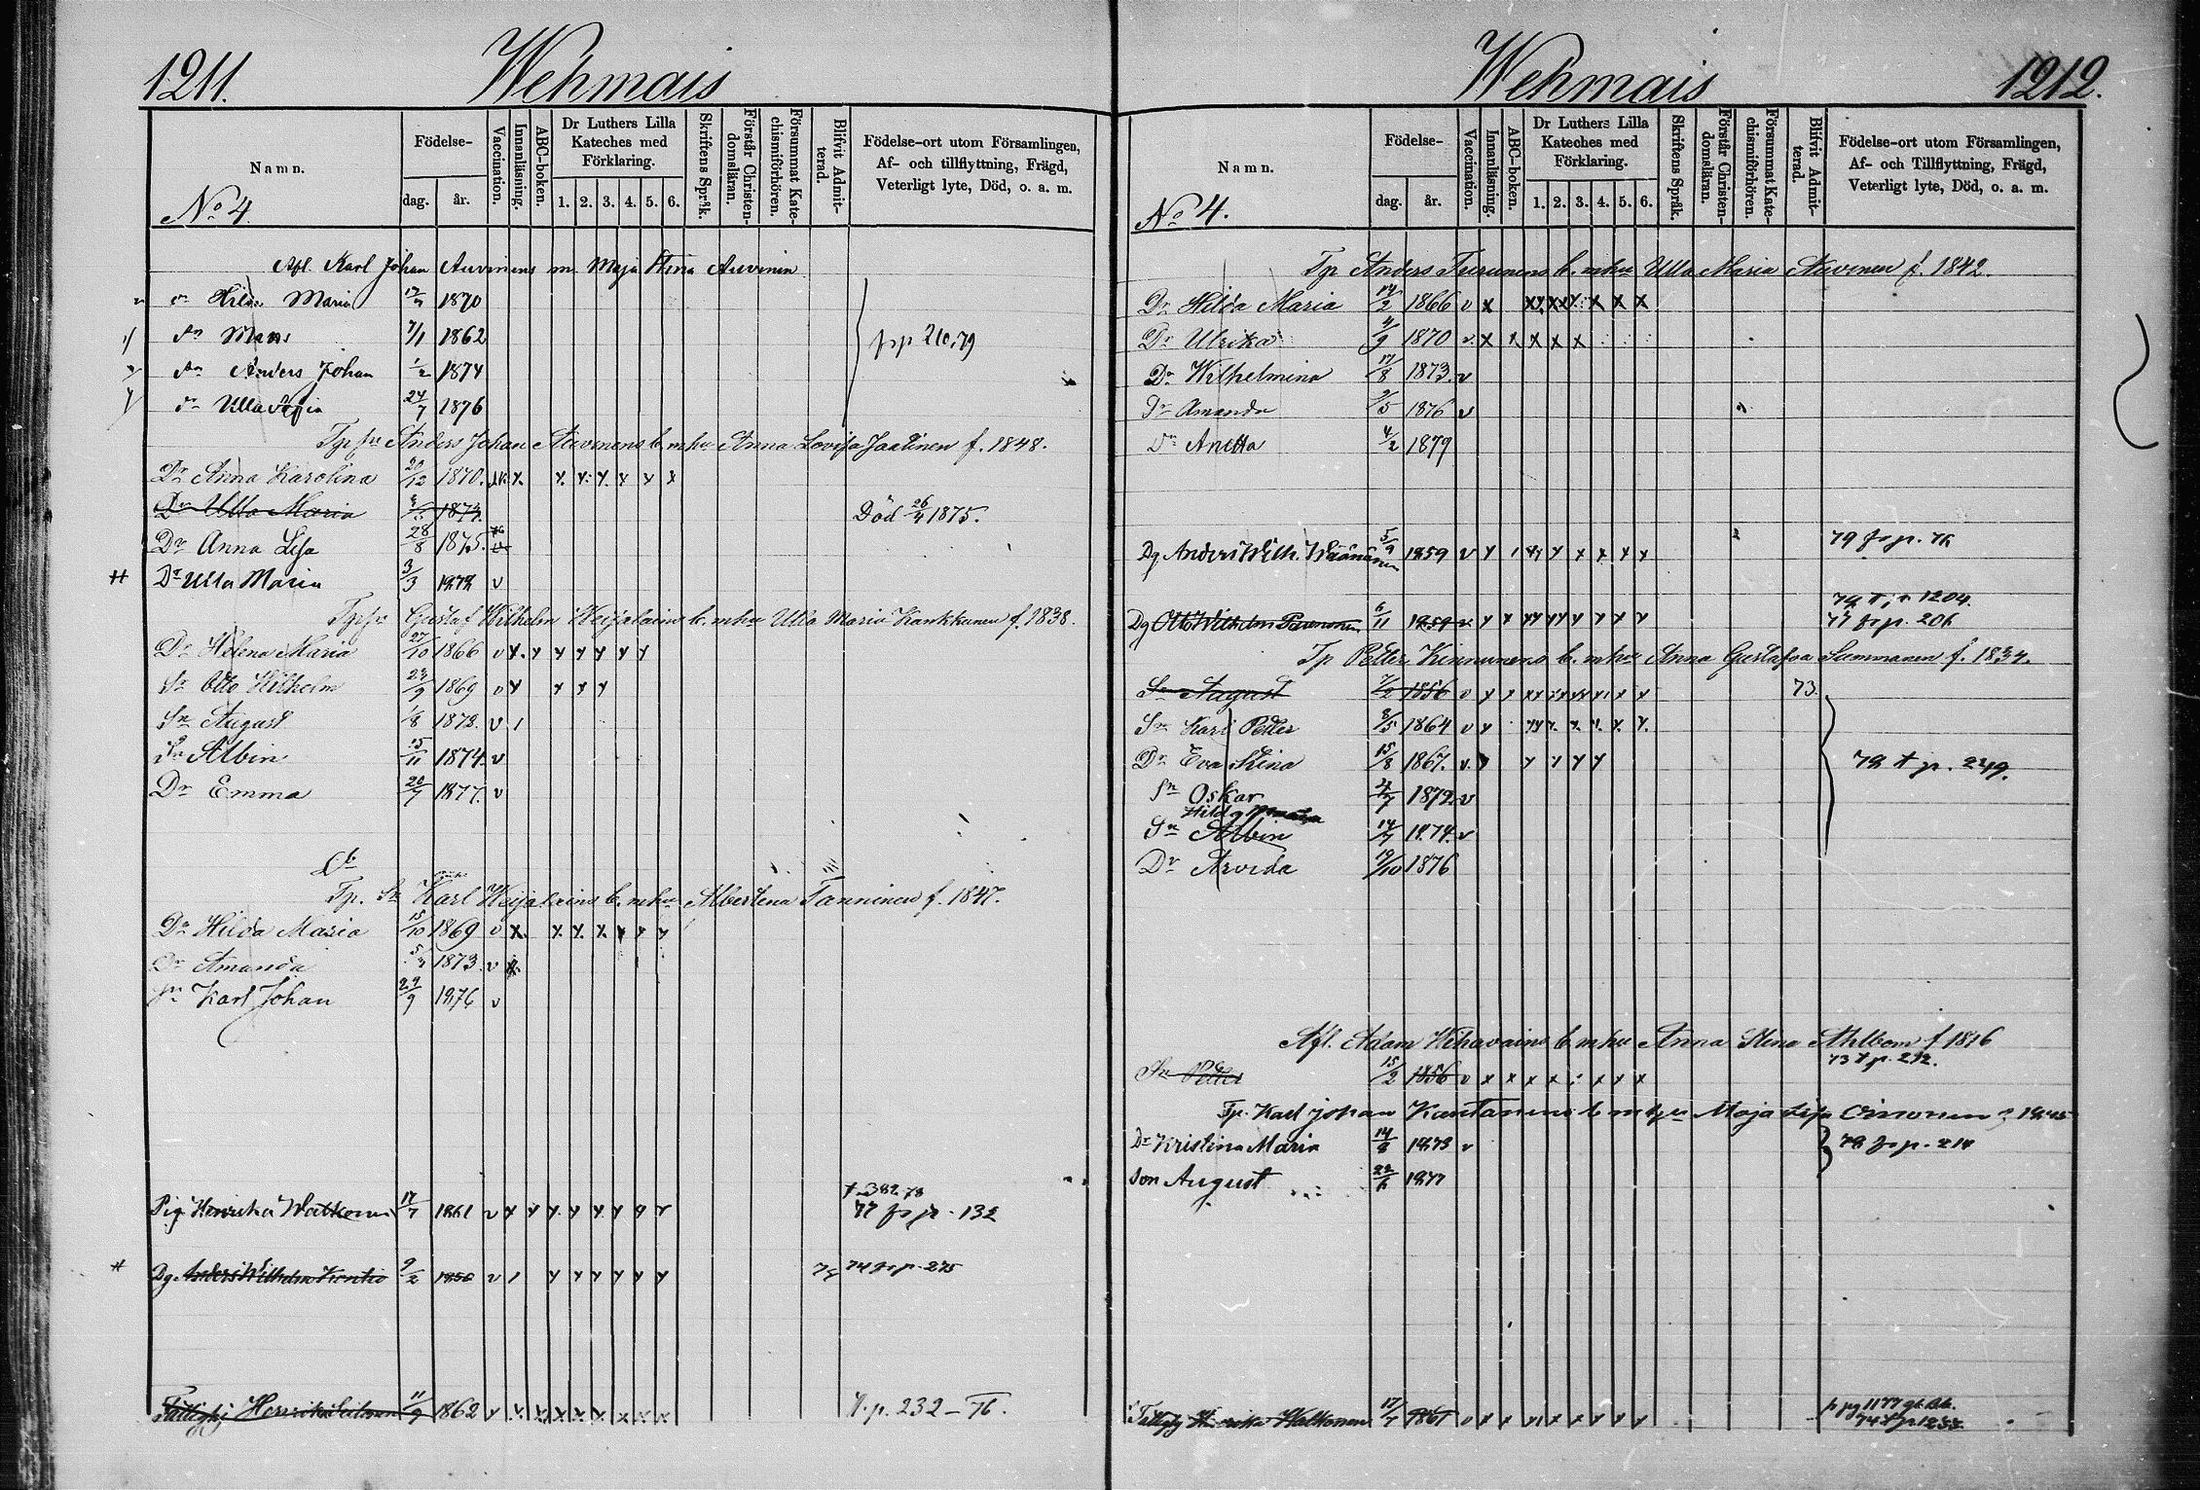 1211.
Wehmais
Namn.
No 4.
Födelse-
dag.
år.
Vaccination.
Innanläsning.
ABC-boken.
Dr Luthers Lilla
Kateches med
Förklaring.
1. 2. 3. 4. 5. 6.
Skriftens Språk.
Förstår Christen-
domsläran.
Försummat Kate-
chismiförhören.
Blifvit Admit-
terad.
Födelse-ort utom Församlingen,
Af- och tillflyttning, Frägd,
Veterligt lyte, Död, o. a. m.
Afl. Karl Johan Auvinens m Maja Stina Auvinen
Maria 17/7 1870
Sn Mans 7/1 1862
fr p 210, 79
Sn Anders Johan 1/2 1874
Dr Ulla Sofia 24/7 1876
Anders Johan Auvinens b. mhu Anna Lovisa Jaatinen f. 1848.
Dr Anna Karolina 20/12 1870. x. x. x. x. x x x
Dr Ulla Maria
Död 26/4 1875.
Dr Anna Lisa 28/8 1875.
Dr Ulla Maria 3/3 1878 v
Gustaf Wilhelm Heijalains b. mhu Ulla Maria Kankkunen f. 1838.
Dr Helena Maria 27/10 1866 v x x x x x x x x
Sn Otto Wilhelm 23/9 1869 v x x x x
Sn August 1/8 1872. v 1
Sn Albin 15/11 1874. v
Dr Emma 20/7 1877. v
Tp. Sn Karl Heijalains b. mhu Albertina Tanninen f. 1847.
Dr Hilda Maria 15/10 1869 v x. x. x. x. x x x
Dr Amanda 1873. v
Sn Karl Johan 29/9 1876 v
t. 382 78
Pig. Henrika Walkonen 17/7 1861 v x x x x x x x x
77 fr p. 132
Dg. Anders Wilhelm Kontio 9/2 1850 v 1 x x x x x x
74 74 fr p. 275
Henrika 11/9 1862 x x. x x x x x x x
p. 232 – 76.
Wehmais
1212.
Namn.
No 4.
Födelse-
dag.
år.
Vaccination.
Innanläsning.
ABC-boken.
Dr Luthers Lilla
Kateches med
Förklaring.
1. 2. 3. 4. 5. 6.
Skriftens Språk.
Förstår Christen-
domsläran.
Försummat Kate-
chismiförhören.
Blifvit Admit-
terad.
Födelse-ort utom Församlingen,
Af- och Tillflyttning, Frägd,
Veterligt lyte, Död, o. a. m.
Tp Anders b. mhu Ulla Maria Auvinen f. 1842.
Dr Hilda Maria 14/2 1866 v x
Dr Ulrika 4/9 1870 v. x x x x x
Dr Wilhelmina 17/8 1873. v
Dr Amanda 9/5 1876 v
Dr Anetta 4/2 1879
Dg Anders Wilh. Väänänen 5/9 1859 v
79 fr p. 76
74 t. p 1204.
Dg Otto Wilhelm 6/11 1859
77 fr p. 206
Tp Petter Kinnunens b. mhu Anna Gustafva Summanen f. 1834.
Sn August 7/2 1856 73.
Sn Karl Petter 8/5 1864
Dr Eva Stina 15/8 1867.
78 t p. 249.
Sn Oskar 1872. v
Hilda Maria
Sn Albin 14/7 1874. v
Dr Arvida 19/10 1876
Afl. Adam Wihavains b mhu Anna Stina Ahlbom f 1816
73 t p. 292.
Sn Petter 15/2 1856 v x x x x x x x
Tp. Karl Johan Kantanens b mhu Maja Lisa Oinonen
Dr Kristina Maria 14/8 1873 v
78 fr p. 214
Son August 22/6 1877
Walkonen 17/7 1861 v x x x x x x x x